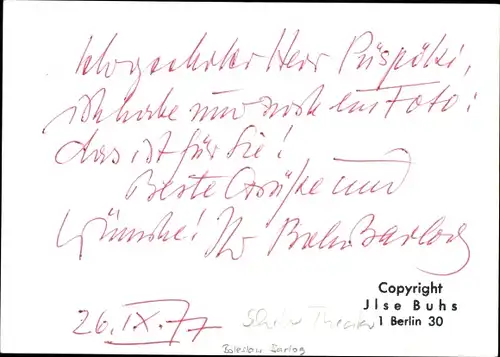 Hochgeehrter Herr Püspöki,
ich habe nur noch ein Foto:
das ist für Sie!
Beste Grüße und
Wünsche! Ihr Bolesl. Barlog
Copyright
Jlse Buhs
1 Berlin 30
26. IX. 77 Schiller Theater
Boleslaw Barlog